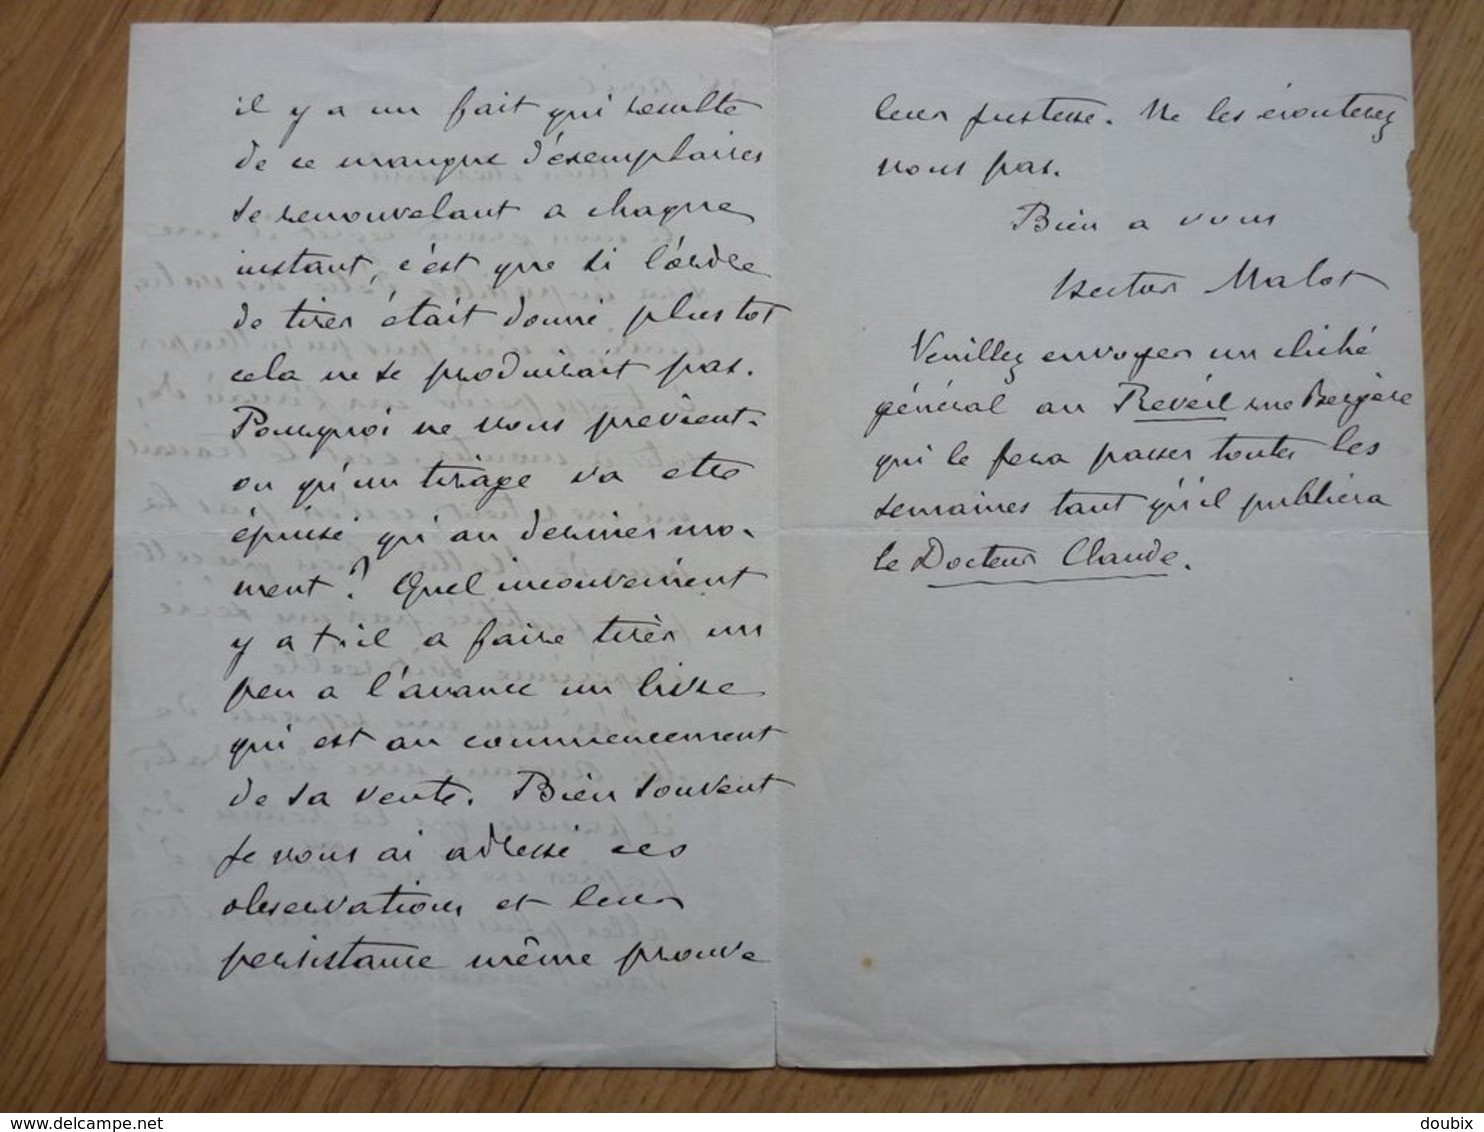 il y a un fait qui resulte
de ce manque d'exemplaires
se renouvelant a chaque
instant, c'est que si l'ordre
de tirer était donné plus tot
cela ne se produirait pas.
Pourquoi ne vous previent-
on qu'un tirage va etre
épuisé qu'au dernier mo-
ment? Quel inconvenient
y a t-il a faire tirer un
peu a l'avance un livre
qui est au commencement
de sa vente. Bien souvent
je vous ai adressé ces
observations et leur
persistance même prouve
leur justesse. Ne les écouterez
vous pas.
Bien a vous
Hector Malot
Veuillez envoyer un cliché
général au Réveil rue Bergère
qui le fera passer toutes les
semaines tant qu'il publiera
le Docteur Claude.
delcampe.net
doubix